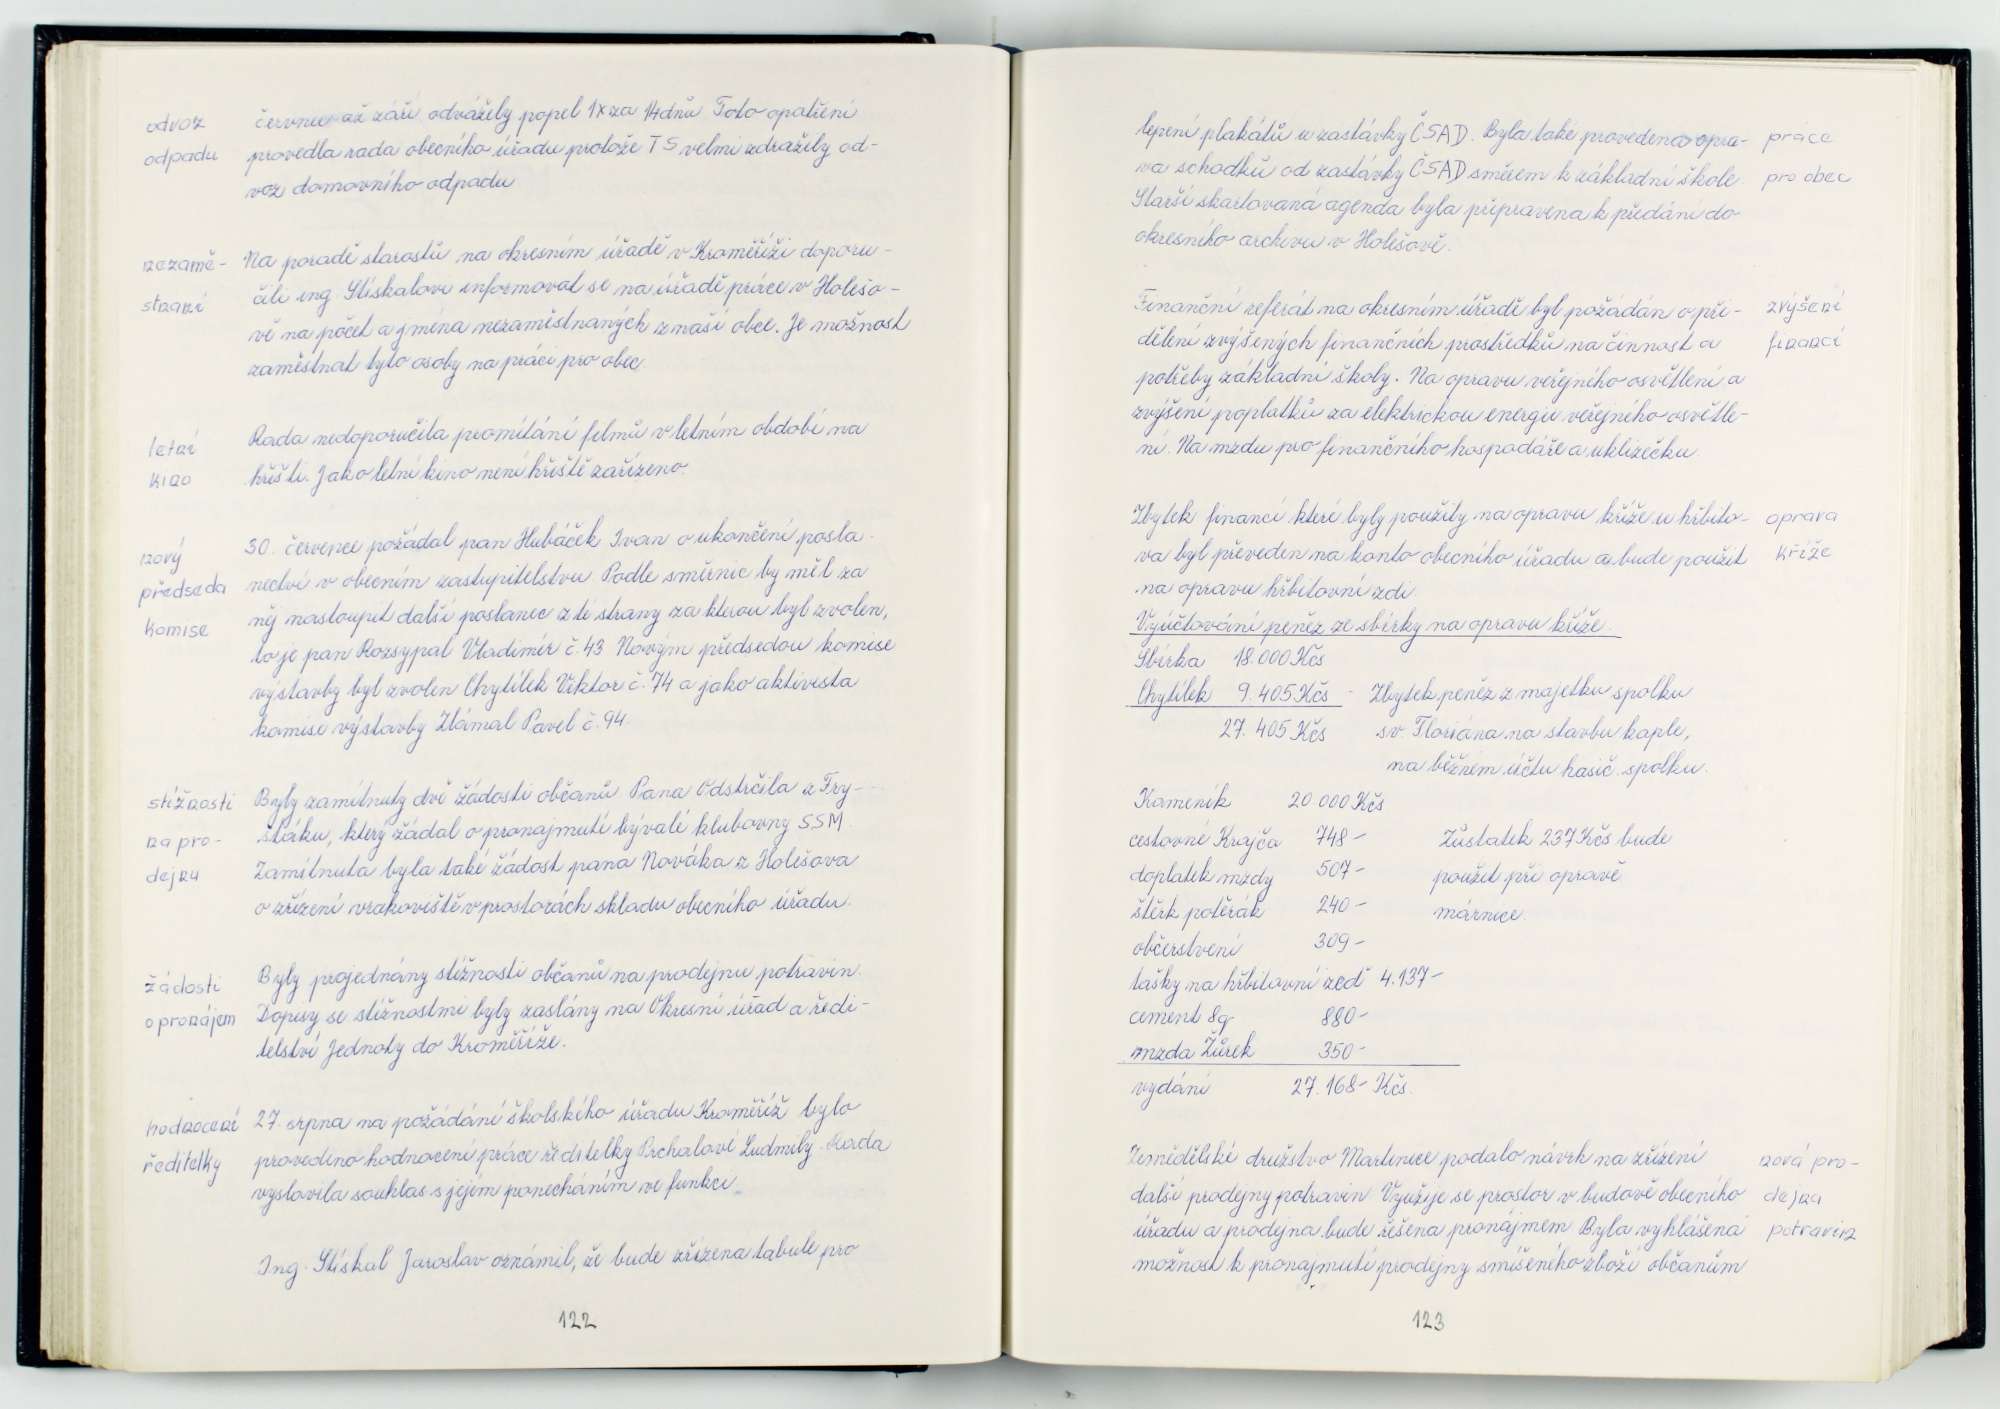 odvoz
odpadu
července až září odvážely popel 1x za 14 dnů Toto opatření
provedla rada obecního úřadu protože TS velmi zdražily od-
voz domovního odpadu
nezamě-
stnaní
Na poradě starostů na okresním úřadě v Kroměříži doporu-
čili ing. Stískalovi informovat se na úřadě práce v Holešo-
vě na počet a jména nezaměstnaných z naší obce. Je možnost
zaměstnat tyto osoby na práci pro obec.
letní
kino
Rada nedoporučila promítání filmů v letním období na
hřišti. Jako letní kino není hřiště zařízeno.
nový
předseda
komise
30. července požádal pan Hubáček Ivan o ukončení posla-
nectví v obecním zastupitelstvu Podle směrnic by měl za
něj nastoupit další poslanec z té strany za kterou byl zvolen,
to je pan Rozsypal Vladimír č. 43 Novým předsedou komise
výstavby byl zvolen Chytílek Viktor č. 74 a jako aktivista
komise výstavby Zlámal Pavel č. 94.
stížnosti
na pro-
dejnu
Byly zamítnuty dvě žádosti občanů Pana Odstrčila z Fry-
štáku, který žádal o pronajmutí bývalé klubovny SSM.
Zamítnuta byla také žádost pana Nováka z Holešova
o zřízení vrakoviště v prostorách skladu obecního úřadu.
žádosti
o pronájem
Byly projednány stížnosti občanů na prodejnu potravin.
Dopisy se stížnostmi byly zaslány na Okresní úřad a ředi-
telství Jednoty do Kroměříže.
hodnocení
ředitelky
27. srpna na požádání školského úřadu Kroměříž bylo
provedeno hodnocení práce ředitelky Prchalové Ludmily. Rada
vyslovila souhlas s jejím ponecháním ve funkci.
Ing. Stískal Jaroslav oznámil, že bude zřízena tabule pro
122
lepení plakátů u zastávky ČSAD. Byla také provedena opra-
va schodků od zastávky ČSAD směrem k základní škole
Starší skartovaná agenda byla připravena k předání do
okresního archivu v Holešově.
práce
pro obec
Finanční referát na okresním úřadě byl požádán o při-
dělení zvýšených finančních prostředků na činnost a
potřeby základní školy. Na opravu veřejného osvětlení a
zvýšení poplatků za elektrickou energii veřejného osvětle-
ní. Na mzdu pro finančního hospodáře a uklízečku.
zvýšení
financí
Zbytek financí které byly použity na opravu kříže u hřbito-
va byl převeden na konto obecního úřadu a bude použit
na opravu hřbitovní zdi.
oprava
kříže
Vyúčtování peněz ze sbírky na opravu kříže.
Sbírka 18.000 Kčs
Chytílek 9.405 Kčs - Zbytek peněz z majetku spolku
27.405 Kčs sv. Floriána na stavbu kaple,
na běžném účtu hasič. spolku.
Kameník 20.000 Kčs
cestovné Krajča 748- Zůstatek 237 Kčs bude
doplatek mzdy 507- použit při opravě
štěrk potěrák 240- márnice.
občerstvení 309-
tašky na hřbitovní zeď 4.137-
cement 8q 880-
mzda Žůrek 350-
vydání 27.168- Kčs.
Zemědělské družstvo Martinice podalo návrh na zřízení
další prodejny potravin Využije se prostor v budově obecního
úřadu a prodejna bude řešena pronájmem Byla vyhlášena
možnost k pronajmutí prodejny smíšeného zboží občanům
nová pro-
dejna
potravin
123